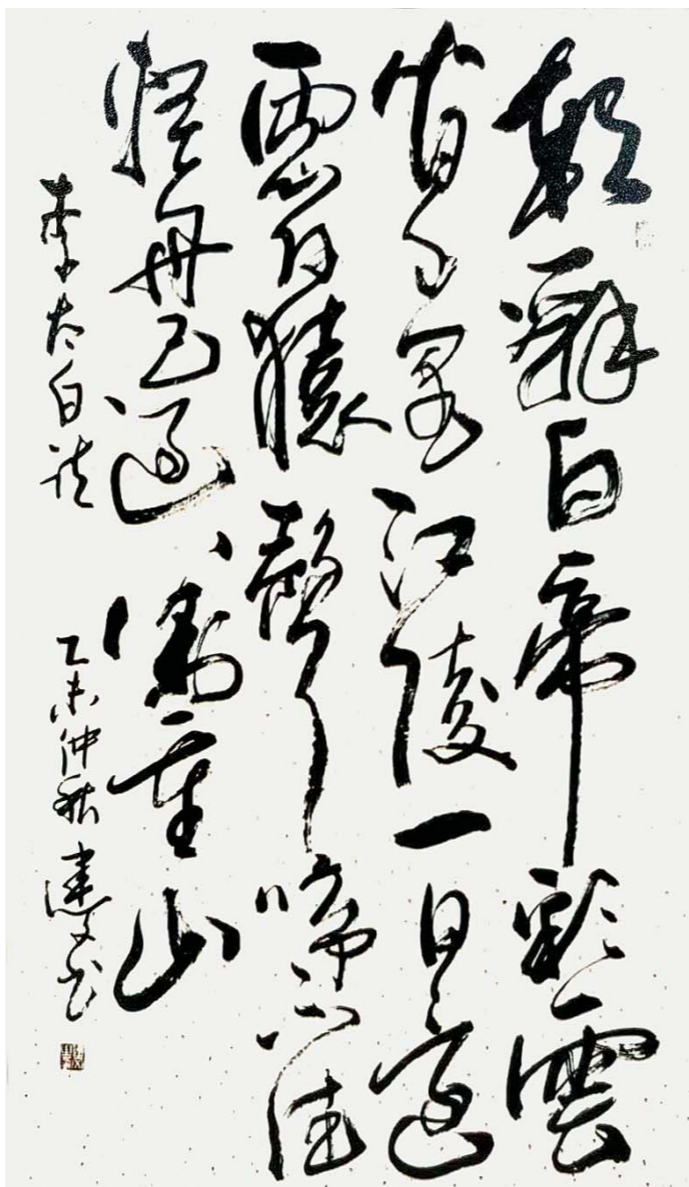 朝辭白帝彩雲
間千里江陵一日還
兩岸猿聲啼不住
輕舟已過萬重山
李太白詩 乙未仲秋 建文书